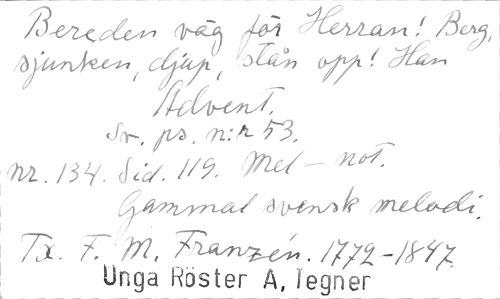 Bereden väg för Herran! Berg,
sjunken, djup, stån opp! Han
Advent.
Sv. ps. n:r 53.
nr. 134. Sid. 119. Mel-not.
Gammal svensk melodi.
Tx. F. M. Franzén. 1772-1847.
Unga Röster A. Tegner